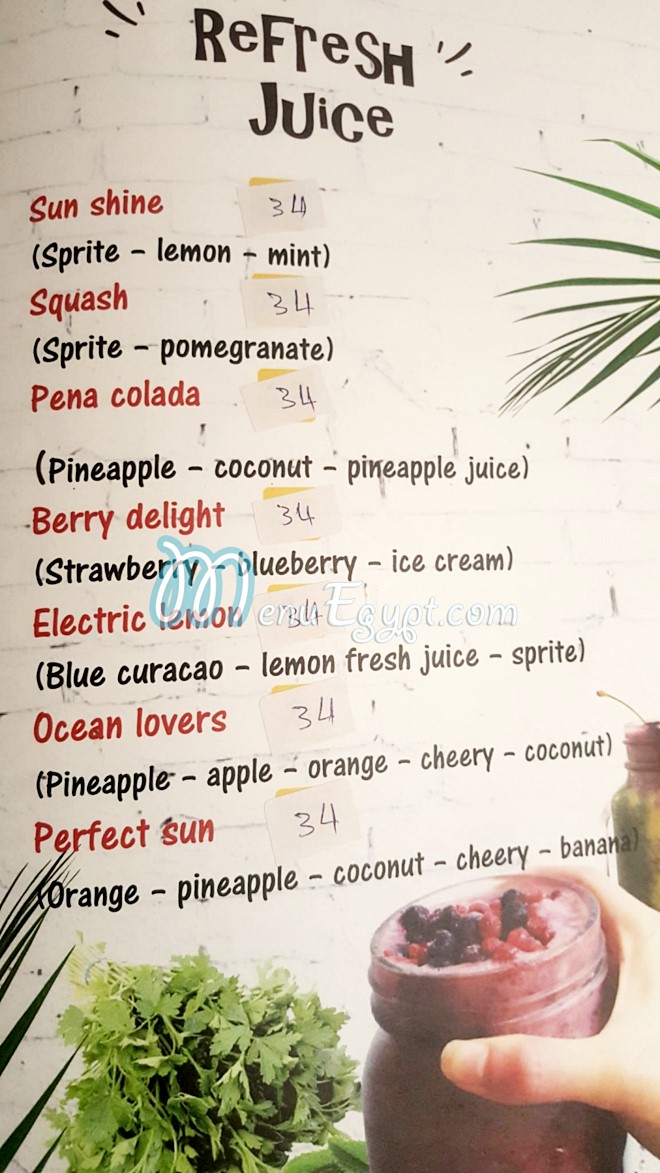 ReFresh
Juice
Sun shine 34
(Sprite - lemon - mint)
Squash 34
(Sprite - pomegranate)
Pena colada 34
(Pineapple - coconut - pineapple juice)
Berry delight 34
(Strawberry - blueberry - ice cream)
Electric lemon 34
MenuEgypt.com
(Blue curacao - lemon fresh juice - sprite)
Ocean lovers 34
(Pineapple - apple - orange - cheery - coconut)
Perfect sun 34
(Orange - pineapple - coconut - cheery - banana)